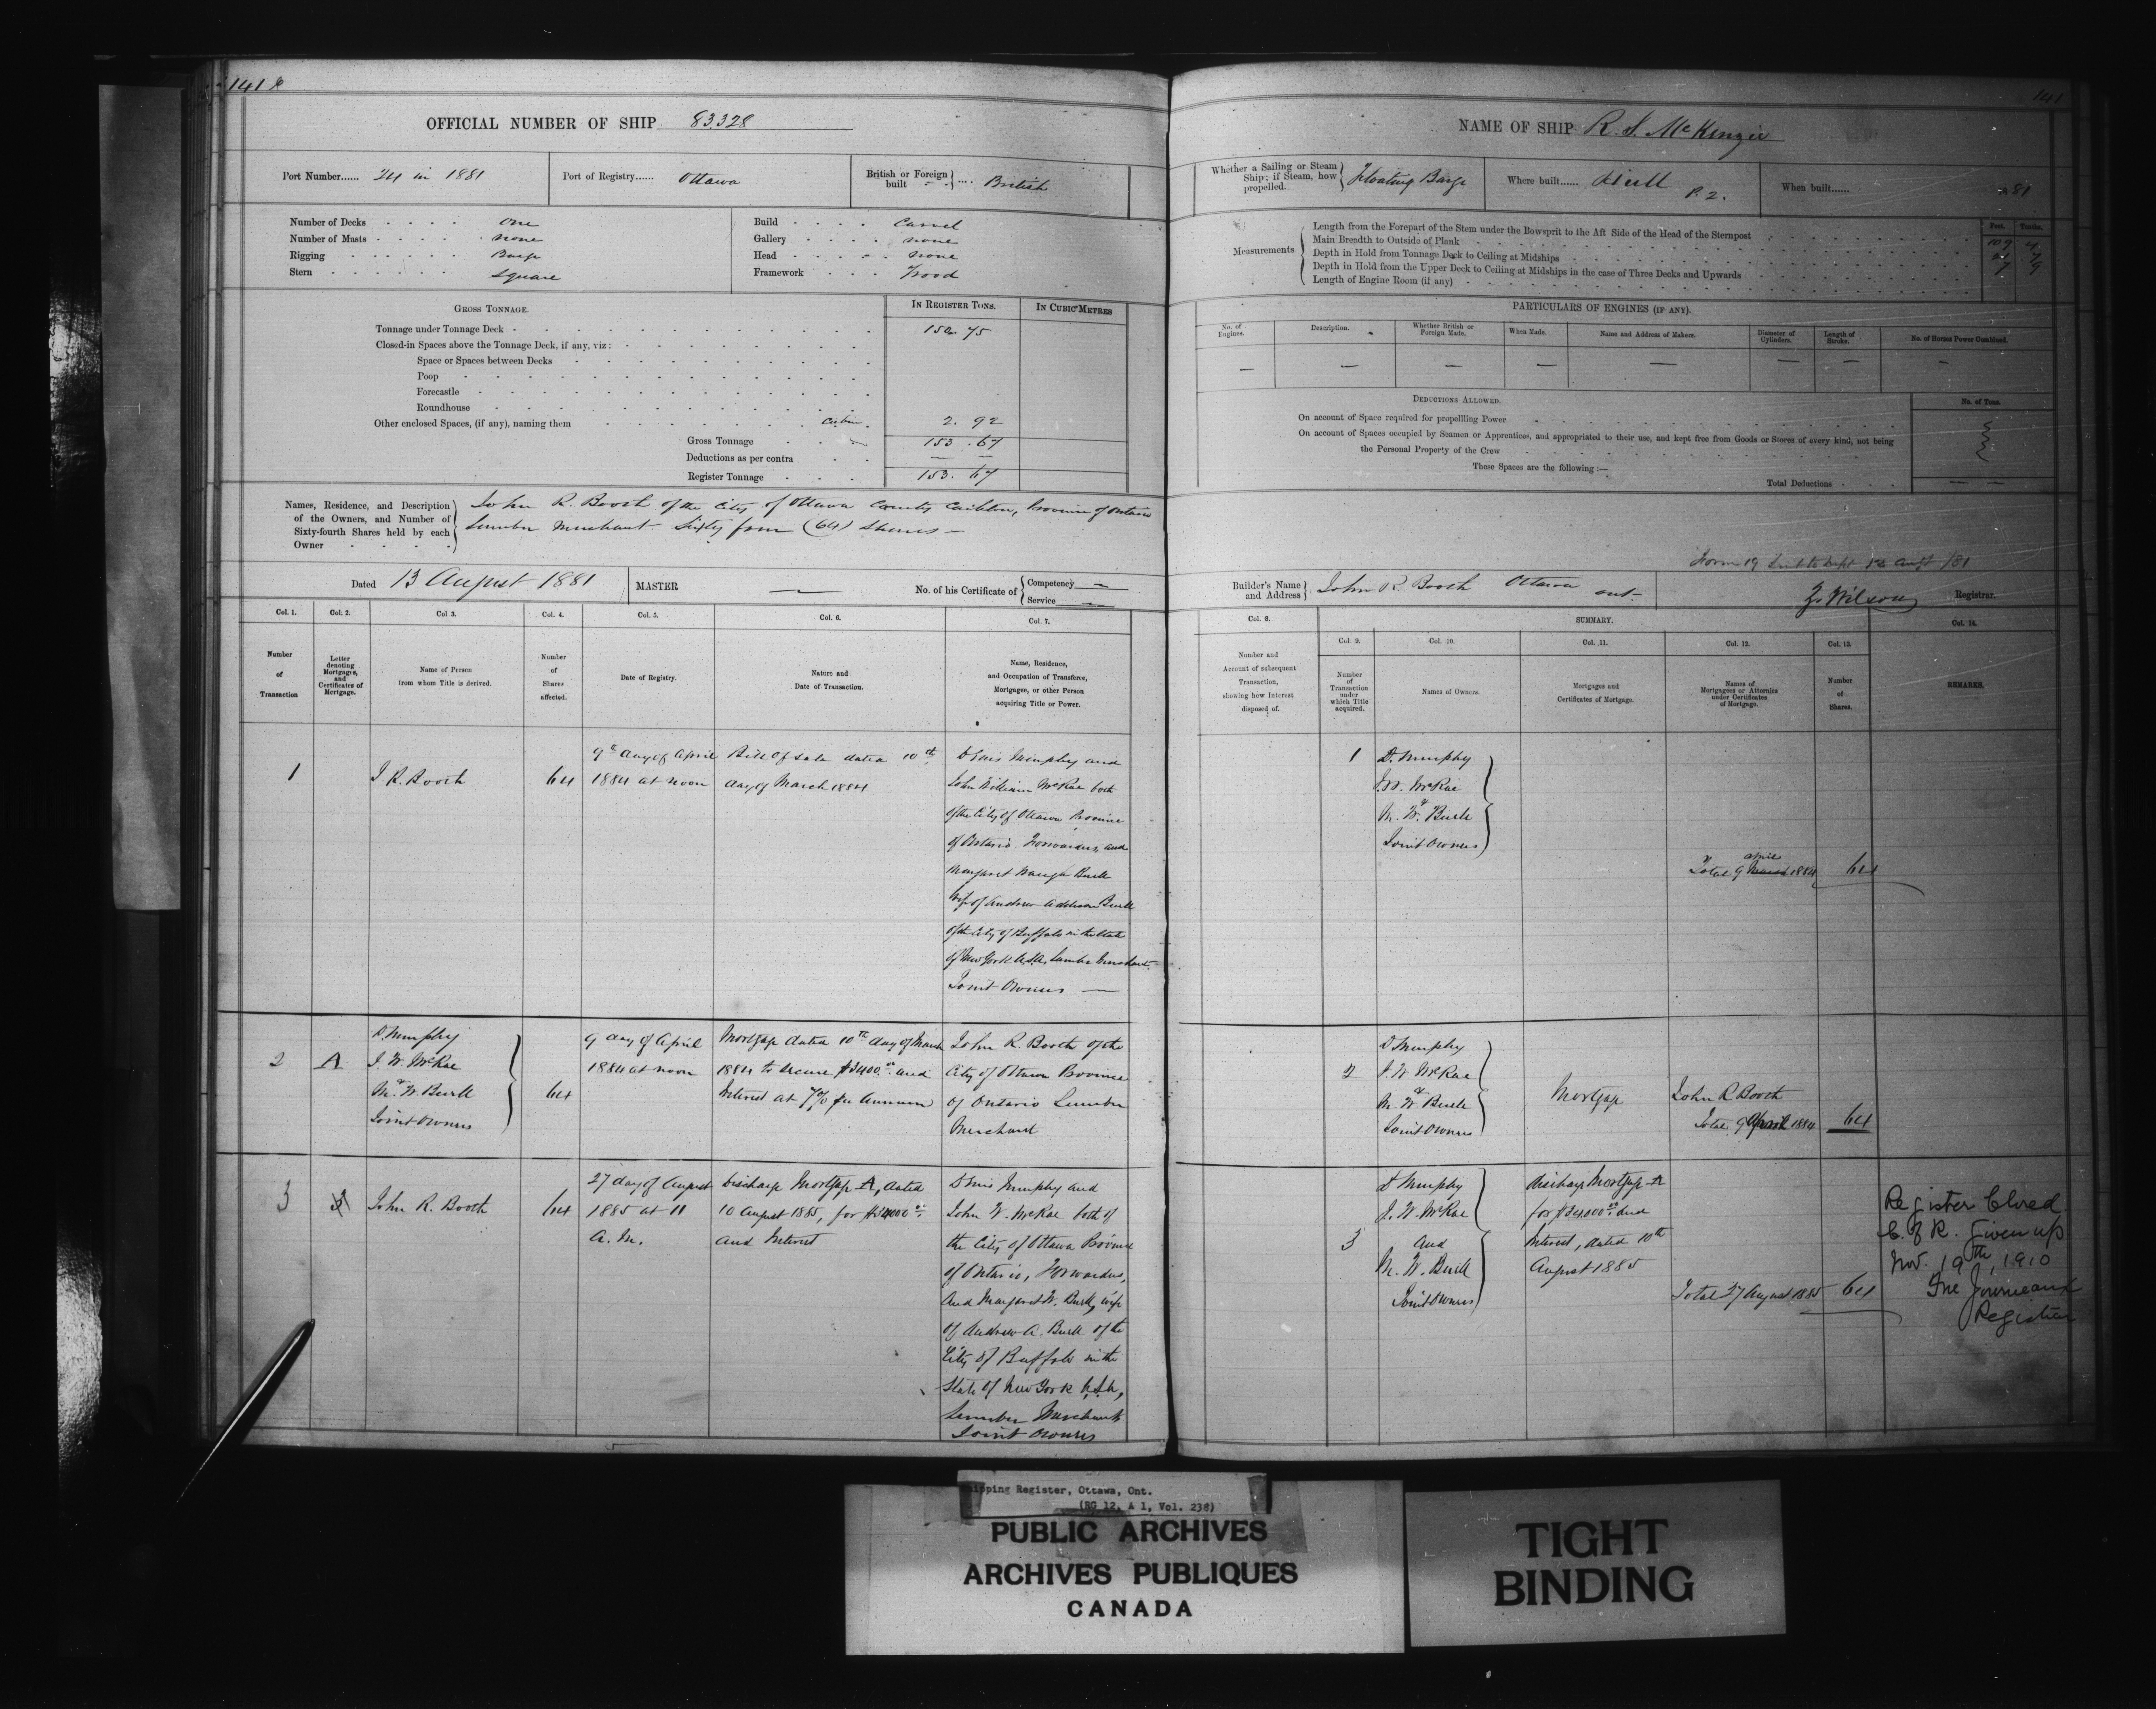 141
OFFICIAL NUMBER OF SHIP 83.328
Port Number...... 24 in 1881
Port of Registry...... Ottawa
British or Foreign built .... British
Number of Decks One
Number of Masts none
Rigging Barge
Stern Square
Build Carvel
Gallery none
Head none
Framework Wood
GROSS TONNAGE.
IN REGISTER TONS.
IN CUBIC METRES
Tonnage under Tonnage Deck 150. 75
Closed-in Spaces above the Tonnage Deck, if any, viz:
Space or Spaces between Decks
Poop
Forecastle
Roundhouse
Other enclosed Spaces, (if any), naming them Cabin. 2. 92
Gross Tonnage 153. 67
Deductions as per contra — —
Register Tonnage 153. 67
Names, Residence, and Description of the Owners, and Number of Sixty-fourth Shares held by each Owner
John R. Booth of the City of Ottawa County Carleton, Province of Ontario
Lumber Merchant Sixty four (64) Shares —
Dated 13 August 1881
MASTER —
No. of his Certificate of
Competency —
Service —
Col. 1.
Col. 2.
Col 3.
Col. 4.
Col. 5.
Col. 6.
Col. 7.
Number of Transaction
Letter denoting Mortgages, and Certificates of Mortgage.
Name of Person from whom Title is derived.
Number of Shares affected.
Date of Registry.
Nature and Date of Transaction.
Name, Residence, and Occupation of Transferee, Mortgagee, or other Person acquiring Title or Power.
1
J. R. Booth
64
9th day of April
1884 at noon
Bill of Sale dated 10th
day of March 1884
Denis Murphy and
John William McRae both
of the City of Ottawa Province
of Ontario. Forwarders, and
Margaret Waugh Burk
wife of Andrew Addison Burk
of the City of Buffalo in the State
of New York U.S.A. Lumber Merchant
Joint Owners —
2
A
D. Murphy
J. W. McRae
&
M. W. Burk
Joint Owners
64
9 day of April
1884 at noon
Mortgage dated 10th day of March
1884 to secure
and
Interest at 7% per Annum
John R. Booth of the
City of Ottawa Province
of Ontario Lumber
Merchant
3
John R. Booth
64
27 day of August
1885 at 11
A. M.
Discharge Mortgage A, dated
10 August 1885, for
and Interest
Denis Murphy and
John W. McRae both of
the City of Ottawa Province
of Ontario, Forwarders,
and Margaret W. Burk, wife
of Andrew A. Burk of the
City of Buffalo in the
State of New York U.S.A.,
Lumber Merchant
Joint Owners
141
NAME OF SHIP R. S. McKenzie
Whether a Sailing or Steam Ship; if Steam, how propelled. Floating Barge
Where built...... Hull P. Q.
When built...... 81
Measurements
Feet. Tenths.
Length from the Forepart of the Stem under the Bowsprit to the Aft Side of the Head of the Sternpost 109 4
Main Breadth to Outside of Plank
Depth in Hold from Tonnage Deck to Ceiling at Midships 7 9
Depth in Hold from the Upper Deck to Ceiling at Midships in the case of Three Decks and Upwards
Length of Engine Room (if any)
PARTICULARS OF ENGINES (IF ANY).
No. of Engines.
Description.
Whether British or Foreign Made.
When Made.
Name and Address of Makers.
Diameter of Cylinders.
Length of Stroke.
No. of Horses Power Combined.
— — — — — — — —
DEDUCTIONS ALLOWED.
No. of Tons.
On account of Space required for propellling Power
On account of Spaces occupied by Seamen or Apprentices, and appropriated to their use, and kept free from Goods or Stores of every kind, not being
the Personal Property of the Crew
These Spaces are the following :—
Total Deductions — —
Form 19 sent to Dept Augt /81
Builder's Name and Address
John R. Booth Ottawa Ont.
Z. Wilson Registrar.
Col. 8.
SUMMARY.
Col. 14.
Col. 9.
Col. 10.
Col. 11.
Col. 12.
Col. 13.
Number and Account of subsequent Transaction, showing how Interest disposed of.
Number of Transaction under which Title acquired.
Names of Owners.
Mortgages and Certificates of Mortgage.
Names of Mortgagees or Attornies under Certificates of Mortgage.
Number of Shares.
REMARKS.
1
D. Murphy
J. W. McRae
&
M. W. Burk
Joint Owners
Total 9 April 1884
64
2
D Murphy
J. W McRae
&
M. W. Burk
Joint Owners
Mortgage
John R Booth
Total 9 April 1884
64
3
D Murphy
J. W. McRae
and
M. W. Burk
Joint Owners
Discharge Mortgage A
for
and
Interest, dated 10th
August 1885
Total 27 August 1885
64
Register Closed
C. of R. Given up
Nov. 19th, 1910
Registrar
Shipping Register, Ottawa, Ont.
(RG 12, A 1, Vol. 238)
PUBLIC ARCHIVES
ARCHIVES PUBLIQUES
CANADA
TIGHT
BINDING